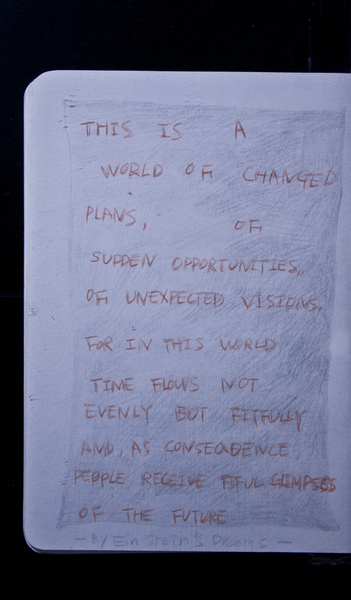 THIS IS A
WORLD OF CHANGED
PLANS, OF
SUDDEN OPPORTUNITIES,
OF UNEXPECTED VISIONS.
FOR IN THIS WORLD
TIME FLOWS NOT
EVENLY BUT FITFULLY
AND, AS CONSEQUENCE,
PEOPLE RECEIVE FITFUL GLIMPSES
OF THE FUTURE
- By Einstein's Dreams -